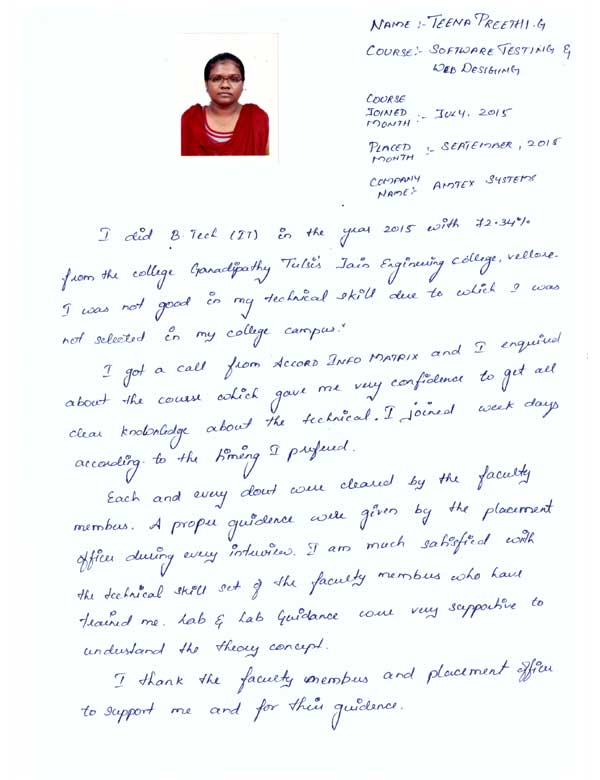 NAME :- TEENA PREETHI.G
COURSE:- SOFTWARE TESTING &
WEB DESIGING
COURSE
JOINED
MONTH :- JULY, 2015
PLACED
MONTH :- SEPTEMBER, 2015
COMPANY
NAME:- AMTEX SYSTEMS
I did B.Tech (IT) in the year 2015 with 72.34%
from the college Ganadipathy Tulsi's Jain Engineering College, vellore.
I was not good in my technical skill due to which I was
not selected in my college campus.
I got a call from ACCORD INFO MATRIX and I enquired
about the course which gave me very confidence to get all
clear knowledge about the technical. I joined week days
according to the timing I prefered.
Each and every dout were cleared by the faculty
members. A proper guidence were given by the placement
officer during every interview. I am much satisfied with
the technical skill set of the faculty members who have
trained me. Lab & Lab Guidance were very supportive to
understand the theory concept.
I thank the faculty members and placement officer
to support me and for their guidence.